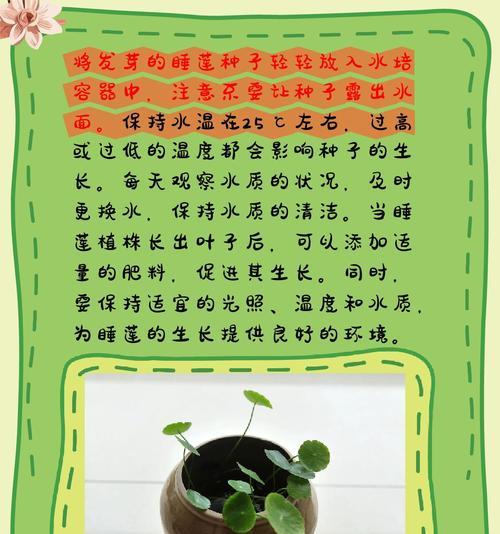 将发芽的睡莲种子轻轻放入水培
容器中，注意不要让种子露出水
面。保持水温在25℃左右，过高
或过低的温度都会影响种子的生
长。每天观察水质的状况，及时
更换水，保持水质的清洁。当睡
莲植株长出叶子后，可以添加适
量的肥料，促进其生长。同时，
要保持适宜的光照、温度和水质，
为睡莲的生长提供良好的环境。